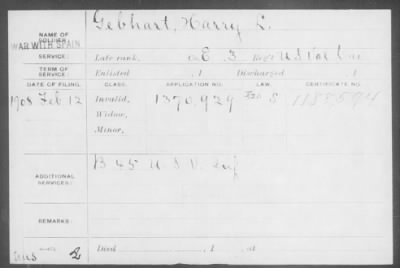 NAME OF SOLDIER: Gebhart, Harry L.
WAR WITH SPAIN
SERVICE: Late rank, Co. E, 3 Reg't U S Vol Cav
TERM OF SERVICE: Enlisted , 1 Discharged , 1
DATE OF FILING. CLASS. APPLICATION NO. LAW. CERTIFICATE NO.
1908 Feb 12 Invalid, 1370,929 S 1187,594
Widow,
Minor,
ADDITIONAL SERVICES: B 45 U S V. Inf
REMARKS:
Died , 1 , at